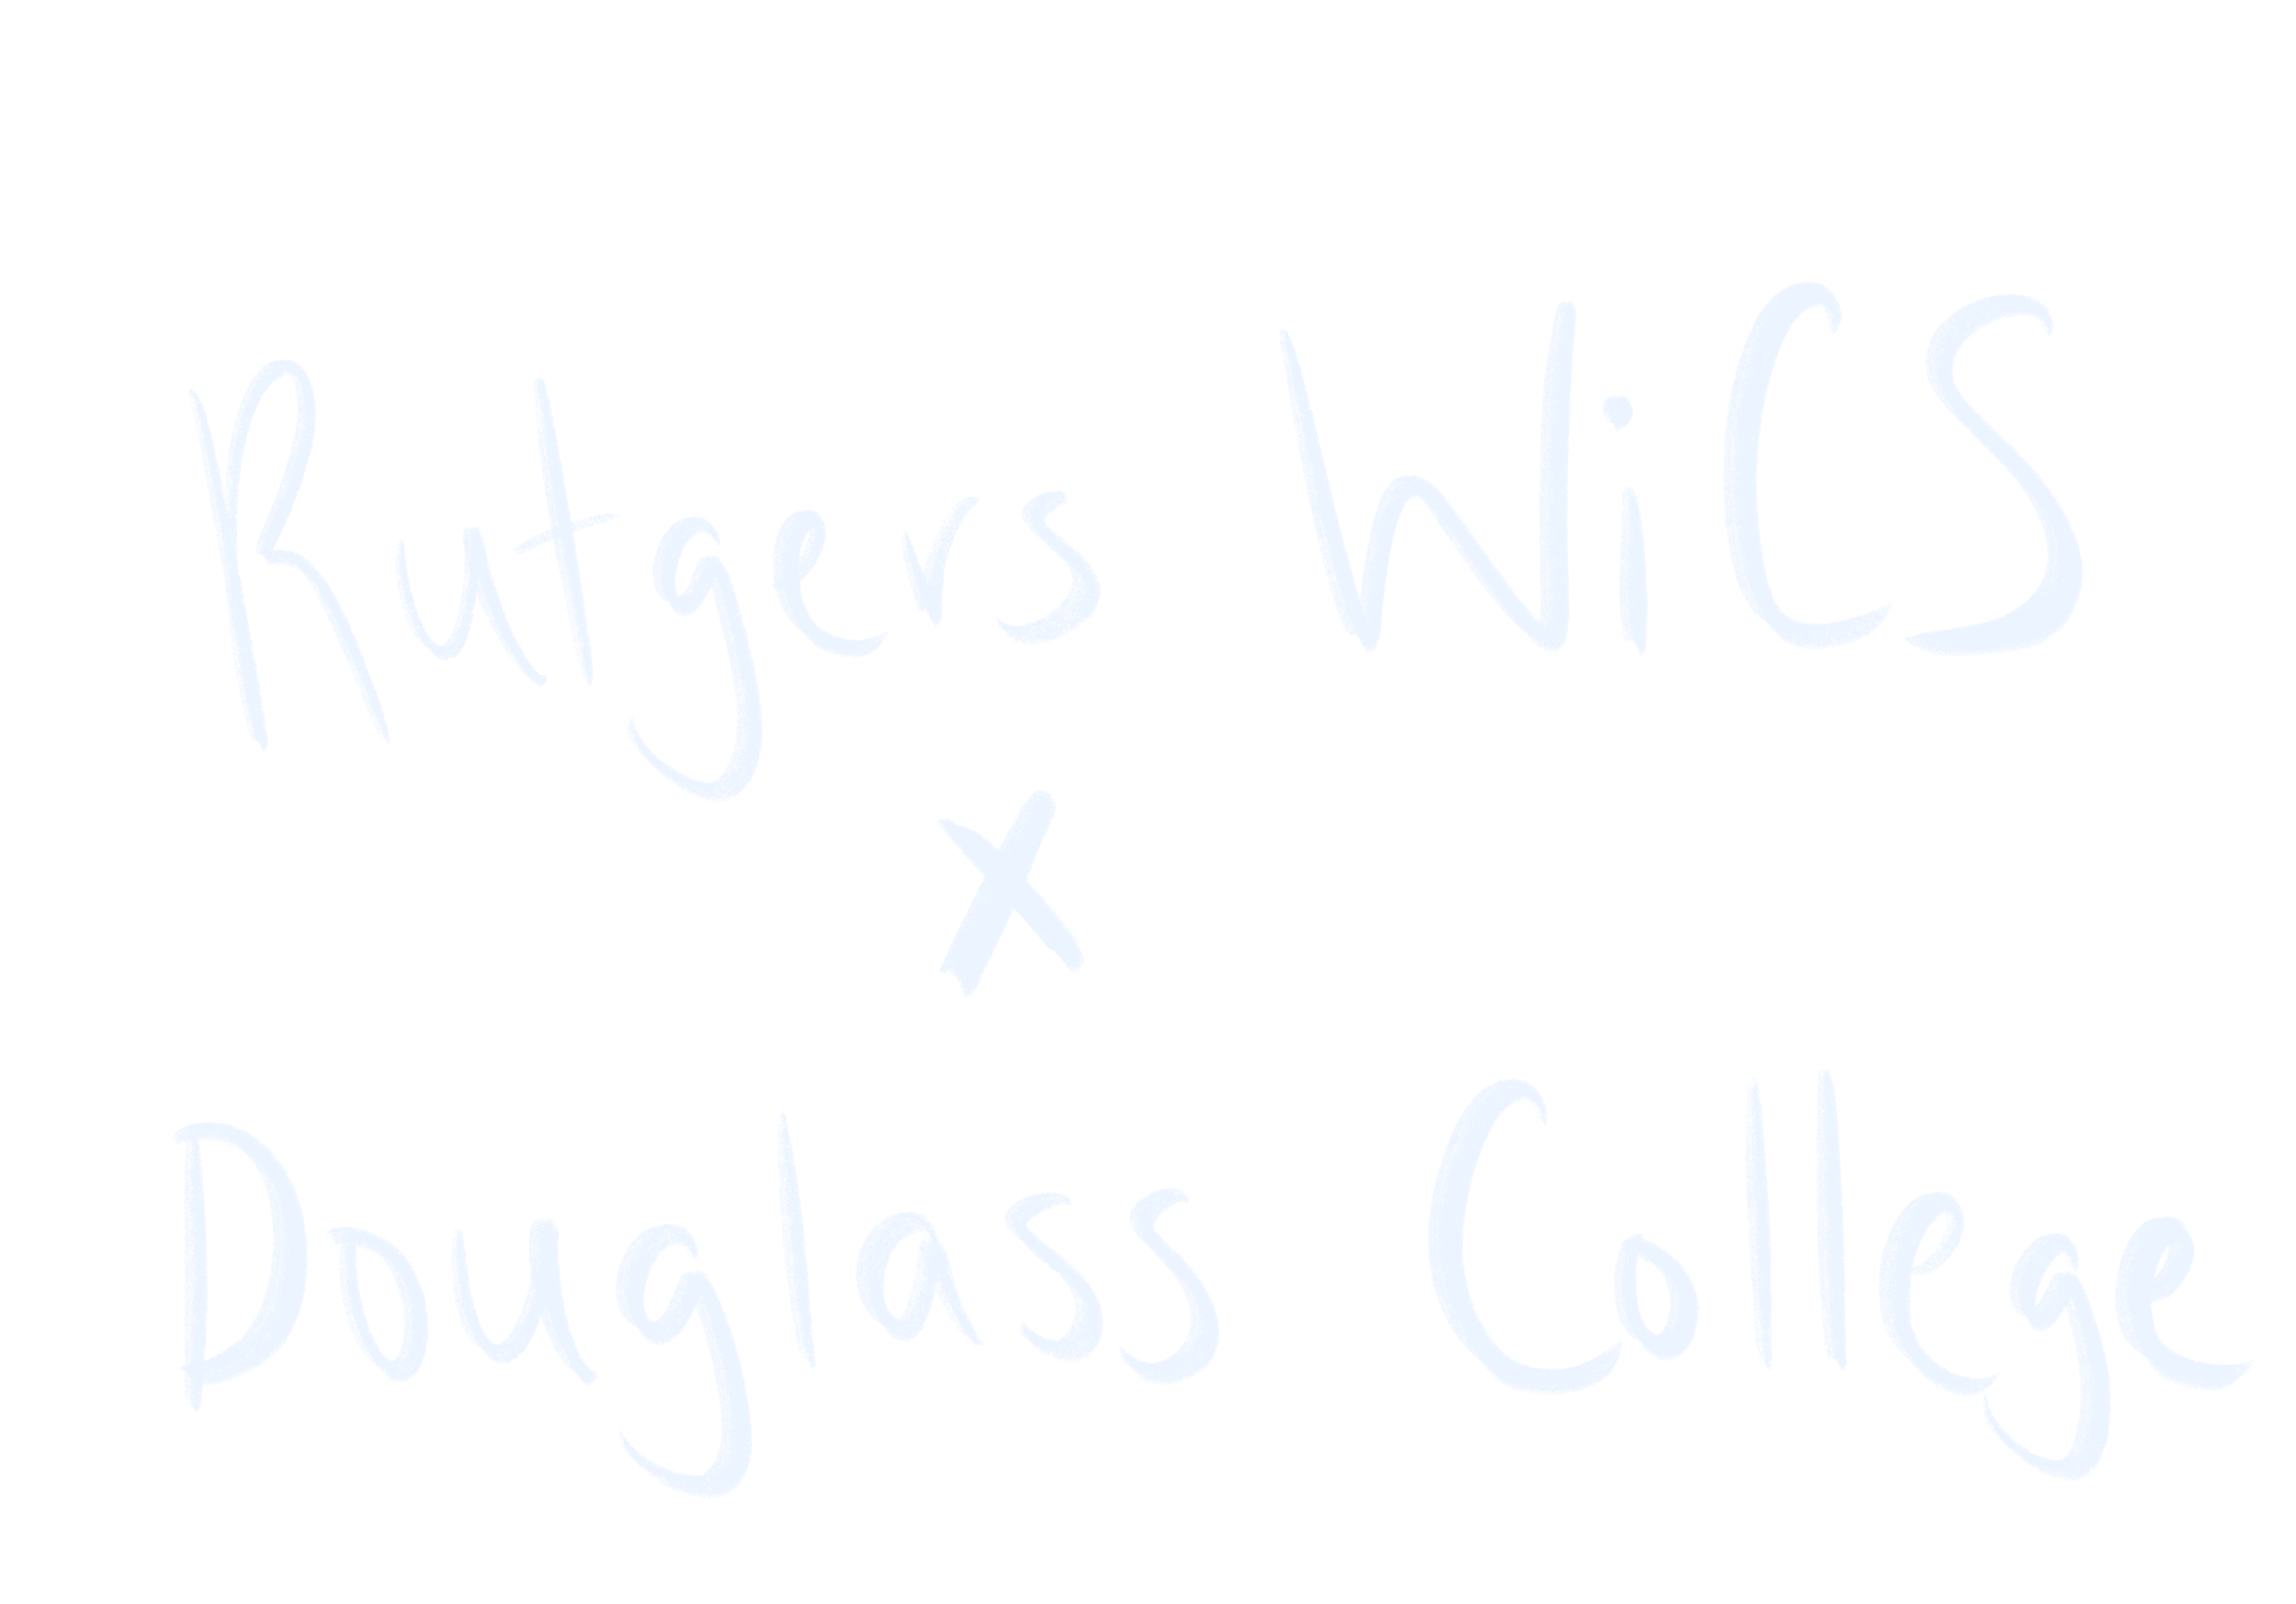 Rutgers WiCS
x
Douglass College